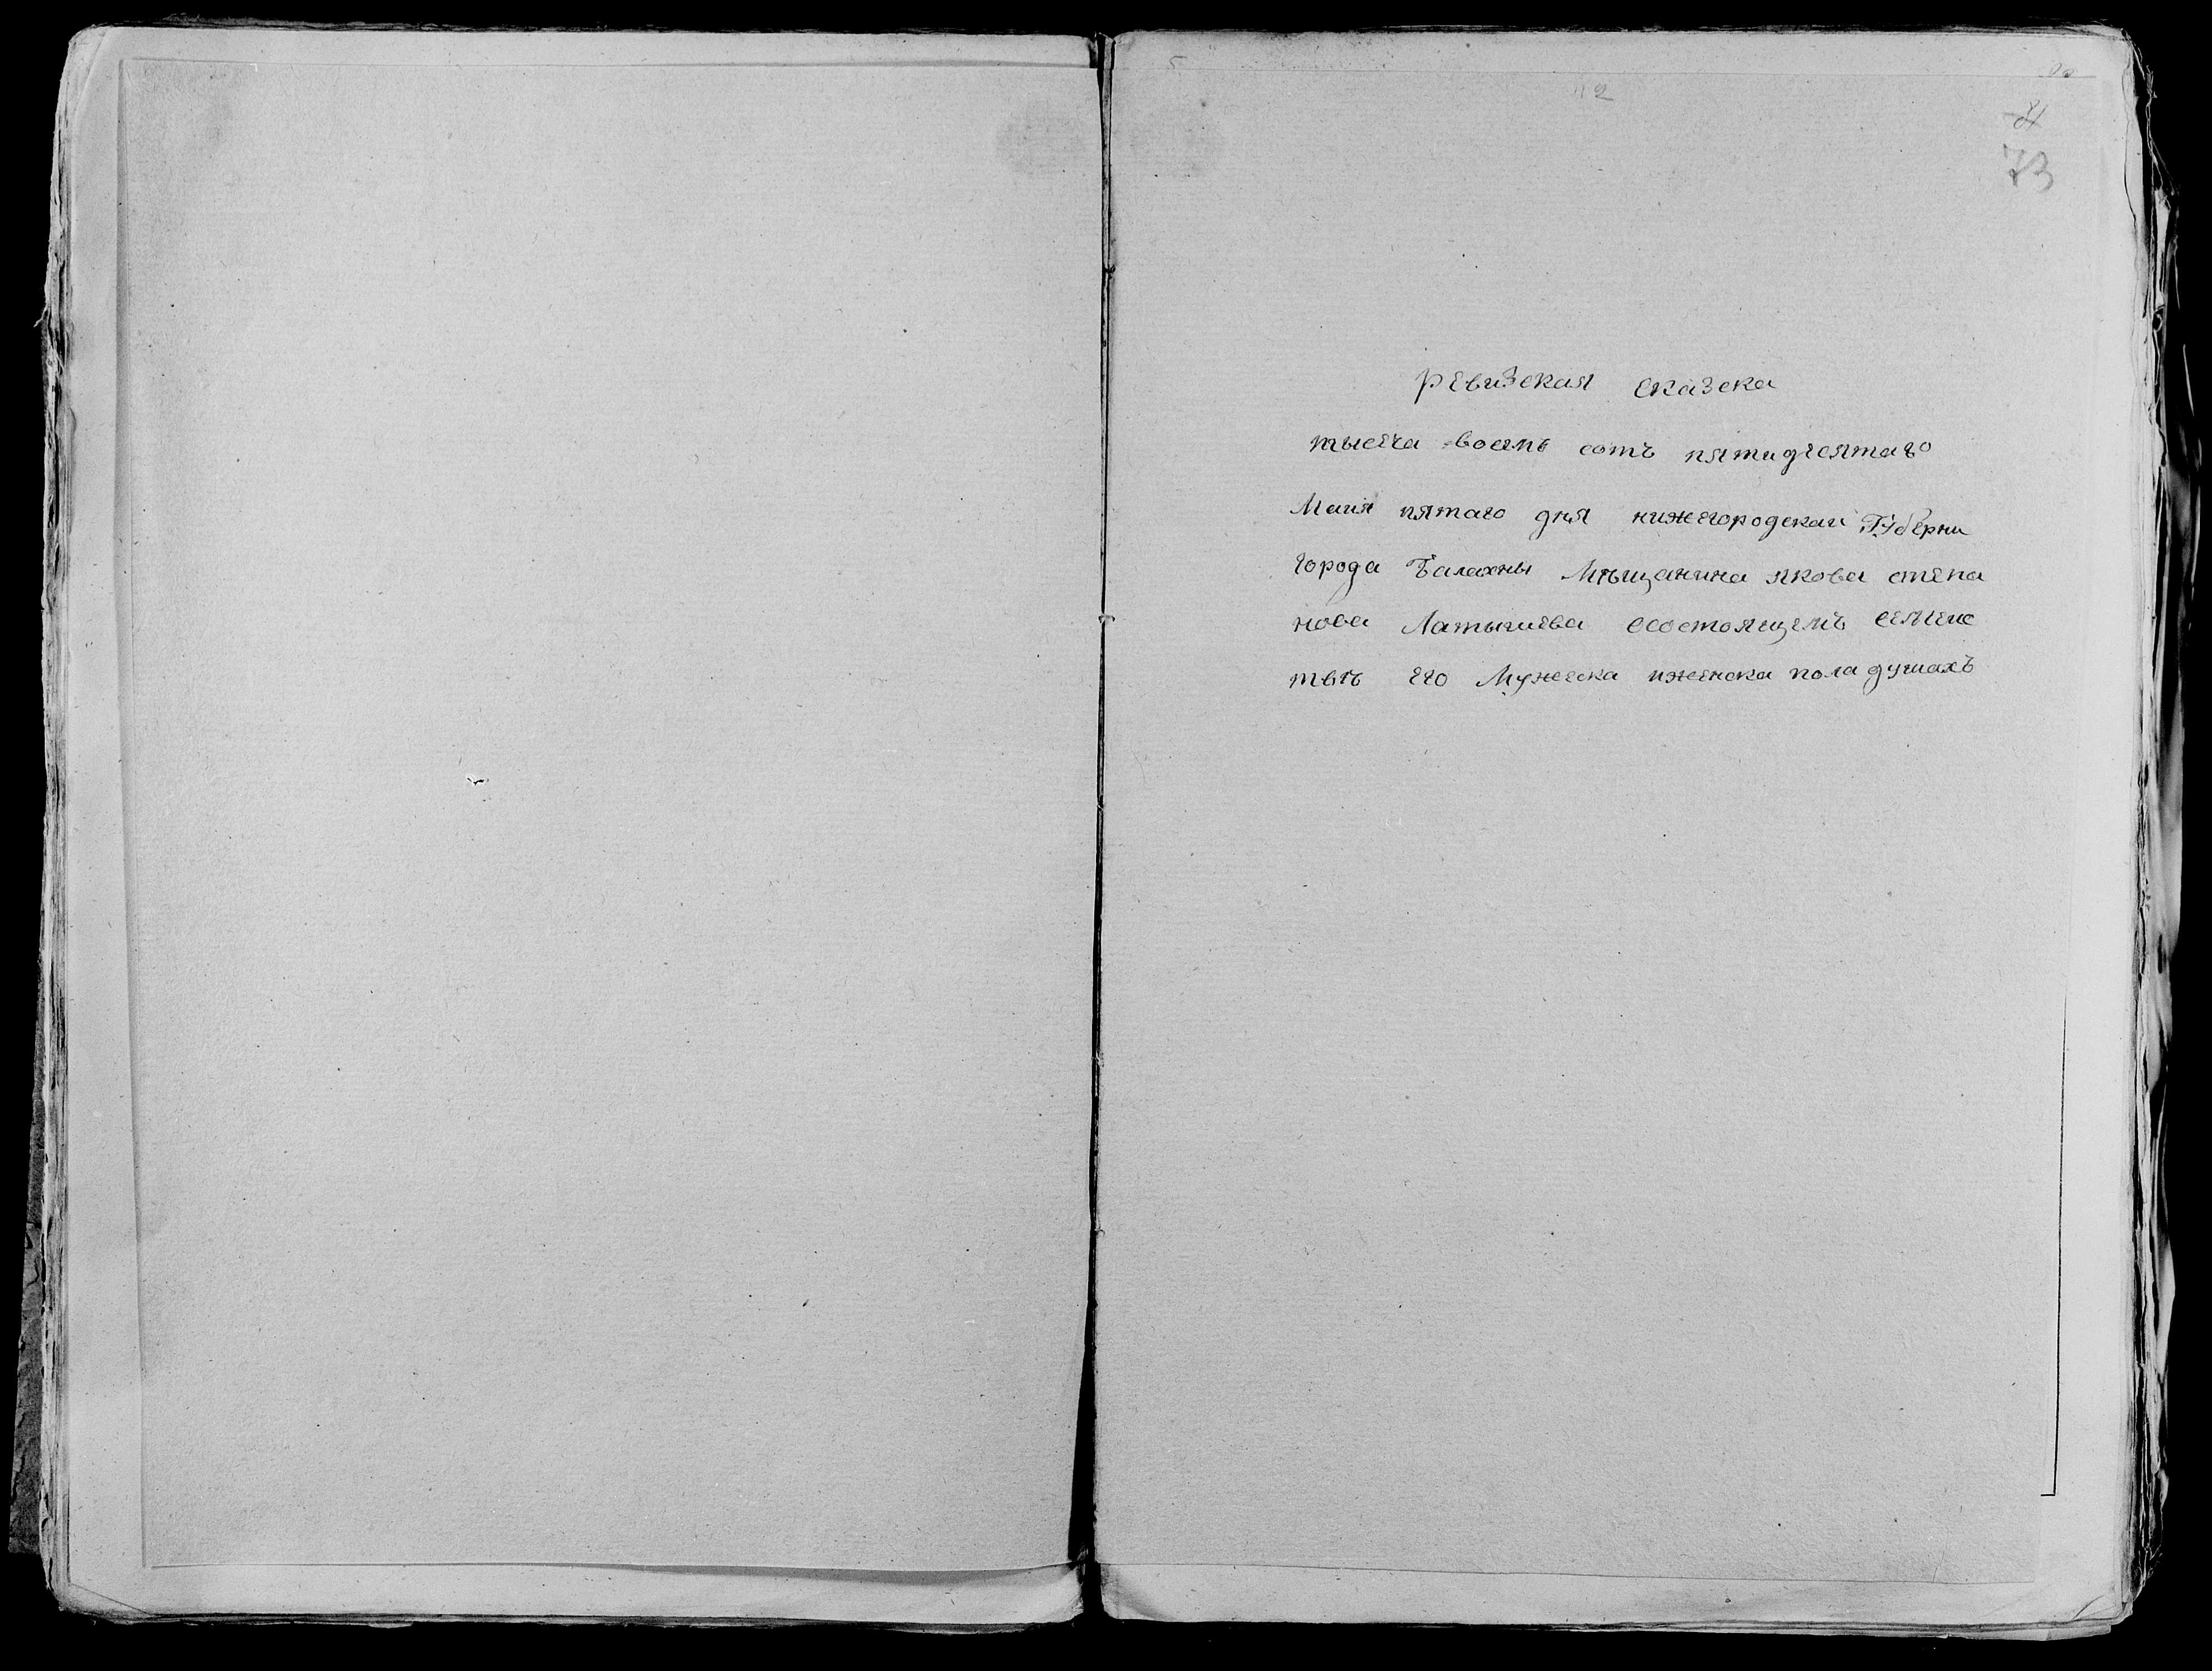 73
Ревизская сказска
тысеча восемь сотъ пятидесятаго
Маия пятаго дня нижегородскаи Губерни
города Балахны Мѣщанина якова степа
нова Латышева ссостоящемъ семенс
твѣ его Мужеска иженска пола душахъ